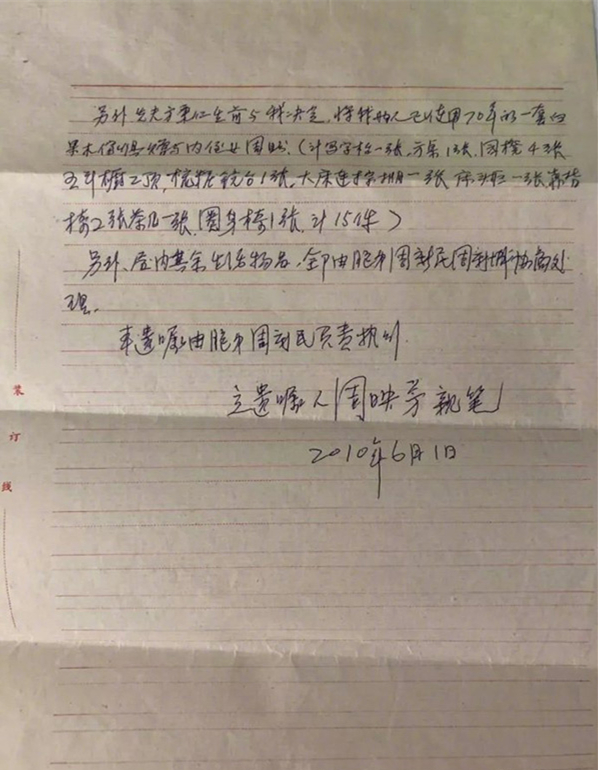 另外先夫方秉仁生前与我决定,将我的人已使用70年的一套白
果木傢俱赠与内侄女周(计写字枱一张、方桌1张、圆櫈4张
五斗橱2项,梳粧镜台1张,大床连棕棚一张 床头柜一张靠背
椅2张茶几一张、圈身椅1张,计15件)
另外、屋内其余生活物品,全P由胞弟周新民周新协商处
理。
本遗嘱由胞弟周新民负责执行.
立遗嘱人周映芳亲笔
2010年6月1日
装
订
线